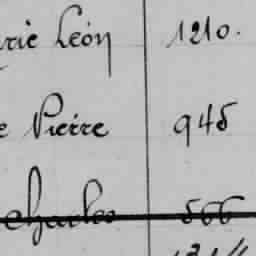 rie Léon 1210.
e Pierre 945
Charles 566